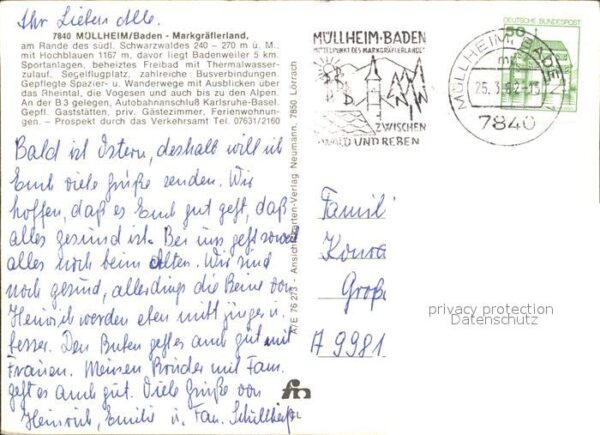 Ihr Lieben Alle.
7840 MÜLLHEIM/Baden - Markgräflerland,
am Rande des südl. Schwarzwaldes 240 – 270 m ü. M.,
mit Hochblauen 1167 m, davor liegt Badenweiler 5 km.
Sportanlagen, beheiztes Freibad mit Thermalwasser-
zulauf. Segelflugplatz, zahlreiche Busverbindungen.
Gepflegte Spazier- u. Wanderwege mit Ausblicken über
das Rheintal, die Vogesen und auch bis zu den Alpen.
An der B 3 gelegen, Autobahnanschluß Karlsruhe-Basel.
Gepfl. Gaststätten, priv. Gästezimmer, Ferienwohnun-
gen. – Prospekt durch das Verkehrsamt Tel. 07631/2160
Bald ist Ostern, deshalb will ich
Euch viele Grüße senden. Wir
hoffen, daß es Euch gut geht, daß
alles gesund ist. Bei uns geht soweit
alles noch beim Alten. Wir sind
noch gesund, allerdings die Beine von
Heinrich werden eben nitt jünger u.
besser. Den Buben geht es auch gut mit
Frauen. Meinem Bruder mit Fam.
geht es auch gut. Viele Grüße von
Heinrich, Emilie u. Fam.
A/E 76 2/3 - Ansichtskarten-Verlag Neumann, 7850 Lörrach
MÜLLHEIM·BADEN
MITTELPUNKT DES MARKGRÄFLERLANDES
ZWISCHEN
WALD UND REBEN
MÜLLHEIM, BADEN
25.3.82-15
7840
DEUTSCHE BUNDESPOST
50
Famili
Konra
Große
A 9981
privacy protection
Datenschutz